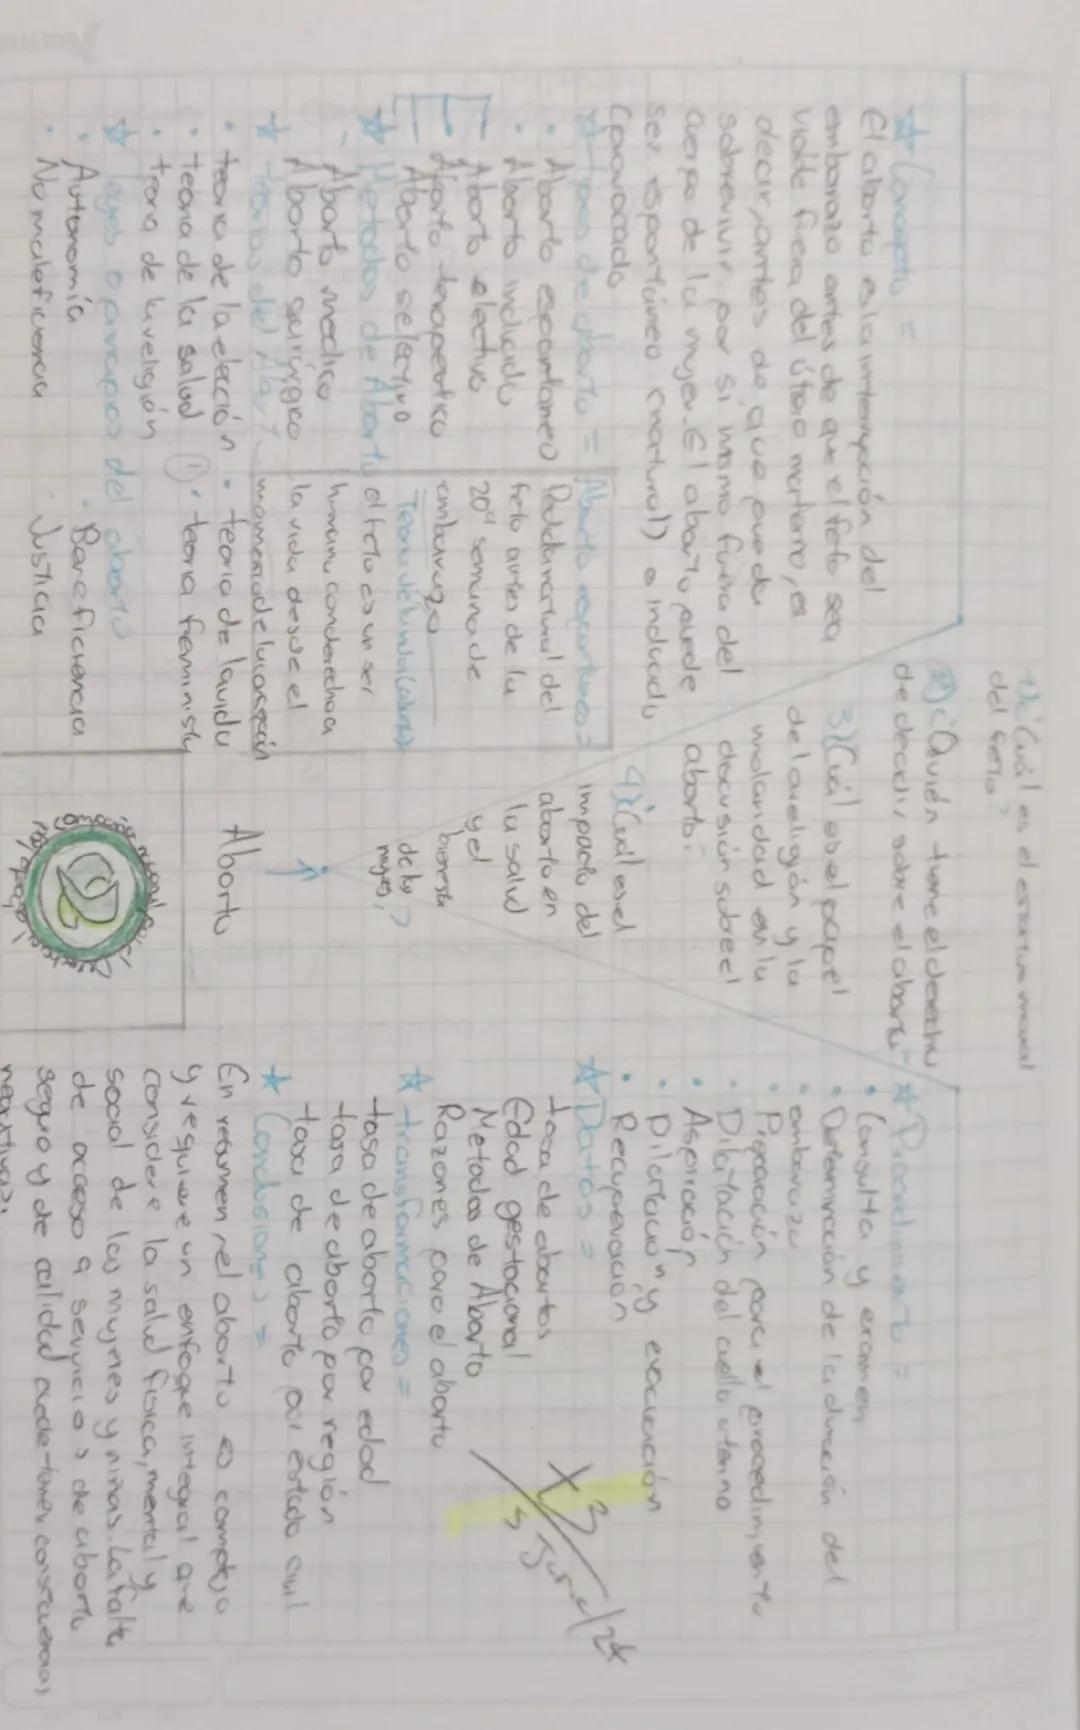 1)¿Cuál es el estatus moral
del feto?
2)¿Quién tiene el derecho
de decidir sobre el aborto
3)¿Cuál es el papel
de la religión y la
moralidad en la
discusión sobre el
aborto?
4)¿Cuál es el
impacto del
aborto en
la salud
y el
bienestar
de las
mujeres?
Aborto
☆ Concepto =
El aborto es la interrupción del
embarazo antes de que el feto sea
viable fuera del útero materno, es
decir, antes de que pueda
sobrevivir por si mismo fuera del
cuerpo de la mujer. El aborto puede
ser espontáneo (natural) o inducido
(provocado
☆ tipos de aborto =
• Aborto espontaneo
• Aborto inducido
Aborto electivo
Aborto terapeutico
Aborto selectivo
☆ Metodos de Aborto
Aborto medico
Aborto quirúrgico
☆ teorias del
• teoria de la elección
• teoria de la salud
• teoria de la religión
• teoria de la vida
• teoria feminista
Aborto espontaneo =
Perdida natural del
feto antes de la
20ª semana de
embarazo
el feto es un ser
humano con derecho a
la vida desde el
momento de la concepción
☆ leyes o principios del aborto
• Autonomía
• Beneficiencia
• No maleficencia
• Justicia
☆ Procedimiento =
• Consulta y examen
• Determinación de la duración del
embarazo
• Preparación para el procedimiento
• Dilatación del cuello uterino
• Aspiración
• Dilatación y evacuación
• Recuperación
☆ Datos =
tasa de abortos
Edad gestacional
Metodos de Aborto
Razones para el aborto
☆ transformaciones =
tasa de aborto por edad
tasa de aborto por región
taxa de aborto por estado civil
☆ Conclusiones =
En resumen, el aborto es complejo
y requiere un enfoque integral que
considere la salud fisica, mental y
social de las mujeres y niñas. La falta
de acceso a servicios de aborto
seguro y de calidad puede tener consecuencias
negativas.